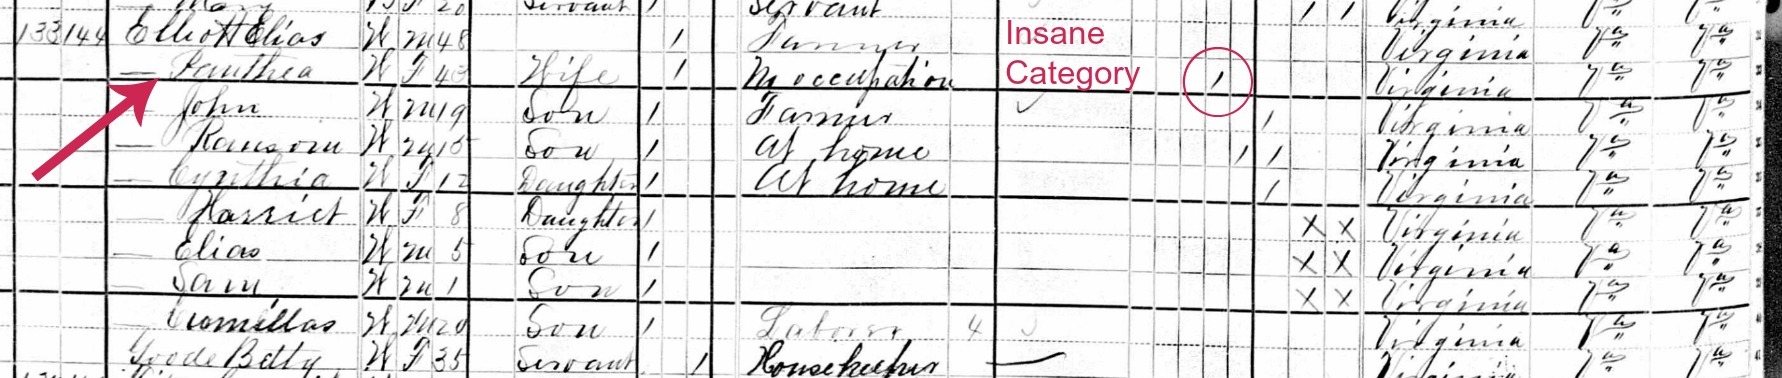 Mary W F 20 Servant / Servant / / Virginia Va Va
133 144 Elliott Elias W M 48 / Farmer Virginia Va Va
— Panthea W F 43 Wife / No occupation / Virginia Va Va
Insane
Category
— John W M 19 Son / Farmer / Virginia Va Va
— Ransom W M 15 Son / At home / / Virginia Va Va
— Cynthia W F 12 Daughter / At home / Virginia Va Va
— Harriet W F 8 Daughter / X X Virginia Va Va
— Elias W M 5 Son / X X Virginia Va Va
— Sam W M 1 Son / X X Virginia Va Va
— W M 20 Son / Laborer 4 Virginia Va Va
Goode Betty W F 35 Servant / Housekeeper — Virginia Va Va